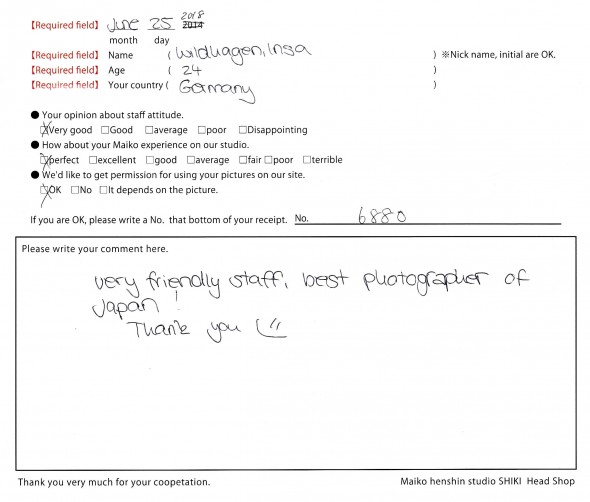 2018
【Required field】 June 25 2014
month day
【Required field】 Name ( Wildhagen, Insa ) ※Nick name, initial are OK.
【Required field】 Age ( 24 )
【Required field】 Your country ( Germany )
● Your opinion about staff attitude.
☒Very good □Good □average □poor □Disappointing
● How about your Maiko experience on our studio.
☒perfect □excellent □good □average □fair □poor □terrible
● We'd like to get permission for using your pictures on our site.
☒OK □No □It depends on the picture.
If you are OK, please write a No. that bottom of your receipt. No. 6880
Please write your comment here.
very friendly staff, best photographer of
Japan!
Thank you (:
Thank you very much for your coopetation. Maiko henshin studio SHIKI Head Shop